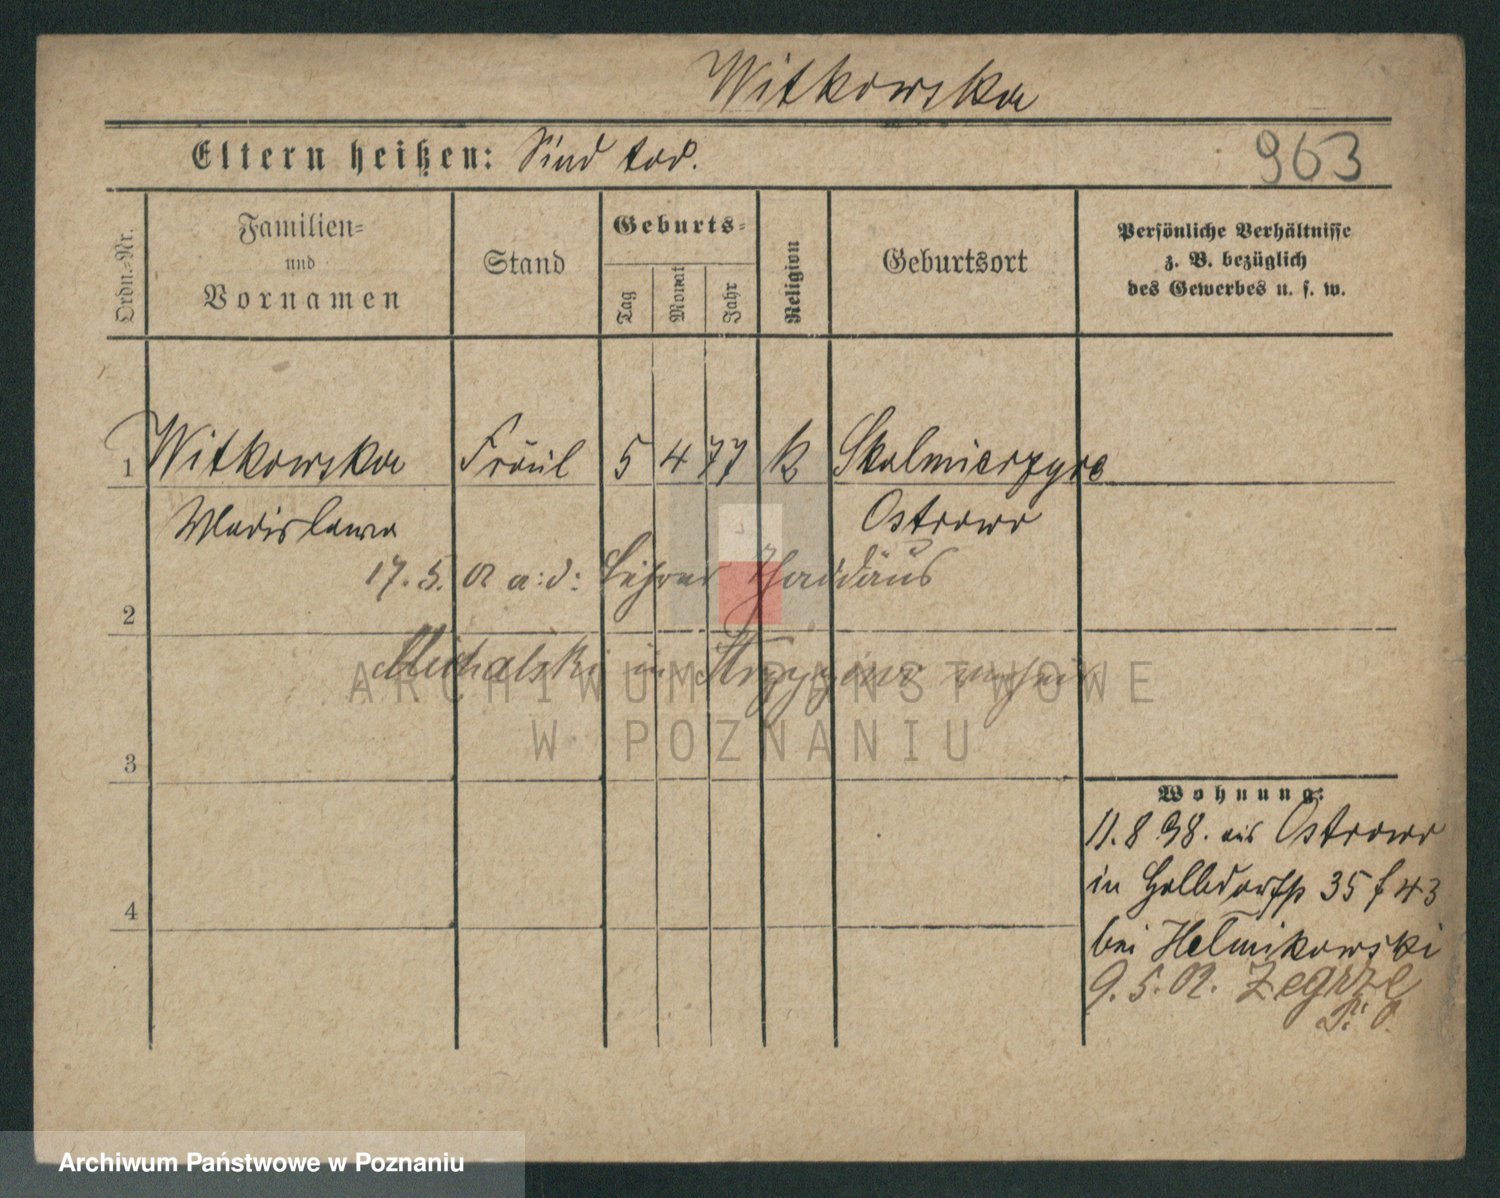 Witkowska
Eltern heißen: Sind tod.
963
Ordn.-Nr.
Familien-
und
Vornamen
Stand
Geburts-
Tag
Monat
Jahr
Religion
Geburtsort
Persönliche Verhältnisse
z. B. bezüglich
des Gewerbes u. s. w.
1 Witkowska Fräul 5 4 77 K Skalmierzyce
Wladislawa Ostrowo
17. 5. 02 a: d: Lehrer Thaddäus
2
Michalski in
ARCHIWUM PAŃSTWOWE
W POZNANIU
3
Wohnung:
11. 8 98. aus Ostrowo
in Halbdorfstr 35 f 43
4
bei Helmikowski
9. 5. 02. Zegrze
Archiwum Państwowe w Poznaniu